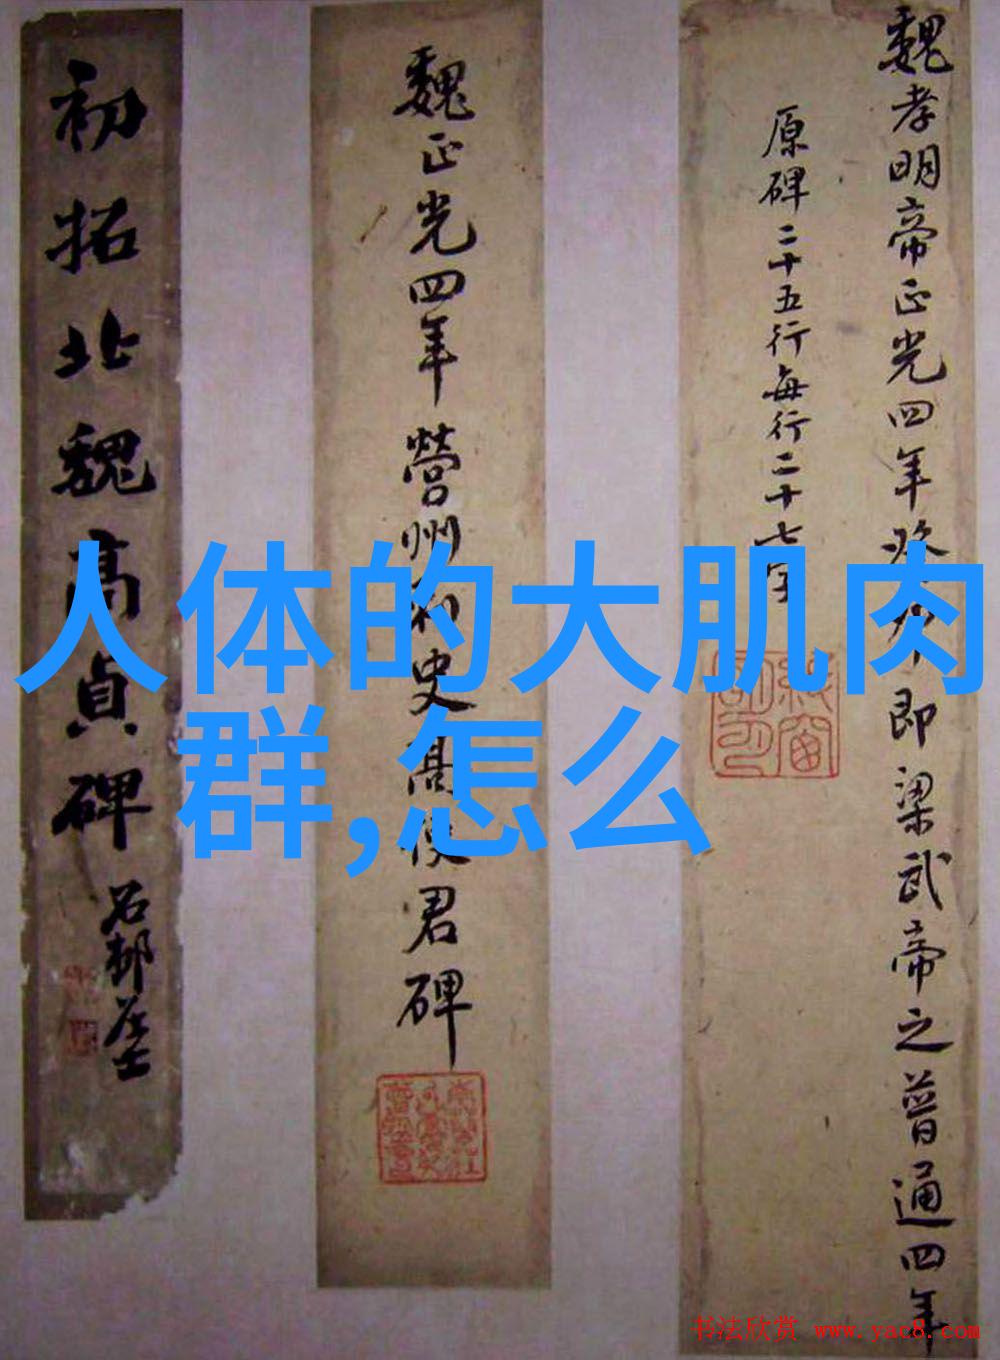 魏孝明帝正光四年癸卯即梁武帝之普通四年
原碑二十五行每行二十七字
魏正光四年營州刺史高使君碑
初拓北魏高貞碑
人体的大肌肉
群,怎么
书法欣赏 www.yac8.com